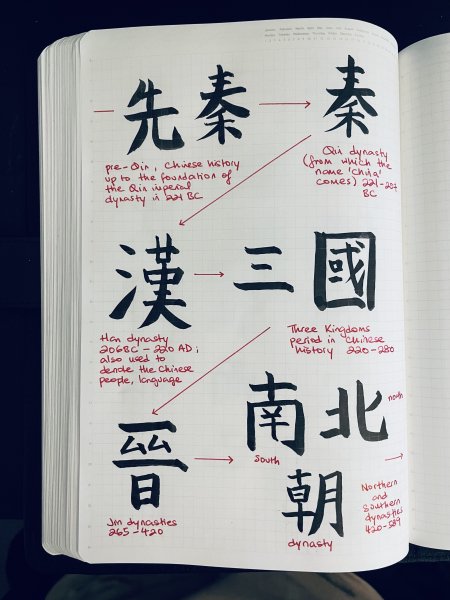 先秦
秦
pre-Qin, Chinese history
up to the foundation of
the Qin imperial
dynasty in 221 BC
Qin dynasty
(from which the
name 'China'
comes) 221-207
BC
漢
三國
Han dynasty
206BC - 220 AD;
also used to
denote the Chinese
people, language
Three Kingdoms
period in Chinese
history 220-280
晉
南北
south
north
朝
Jin dynasties
265-420
dynasty
Northern
and
Southern
dynasties
420-589